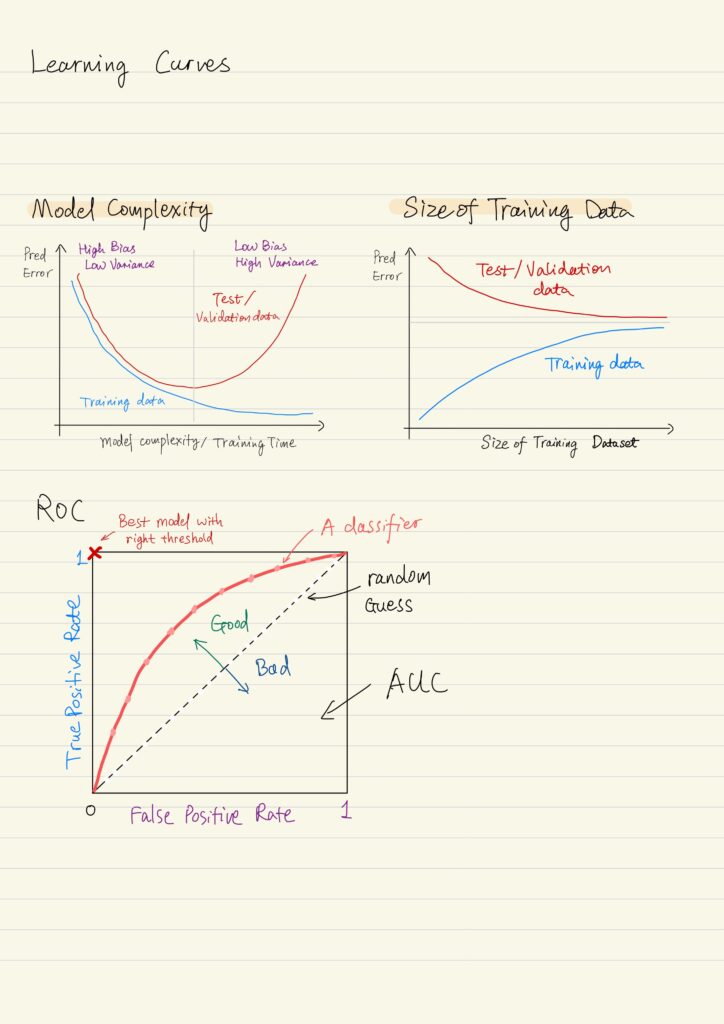 Learning Curves
Model Complexity
Pred
Error
High Bias
Low Variance
Low Bias
High Variance
Test/
Validation data
Training data
Model complexity/ Training Time
Size of Training Data
Pred
Error
Test/Validation
data
Training data
Size of Training Dataset
ROC
Best model with
right threshold
A classifier
1
random
Guess
Good
Bad
AUC
True Positive Rate
0
False Positive Rate
1